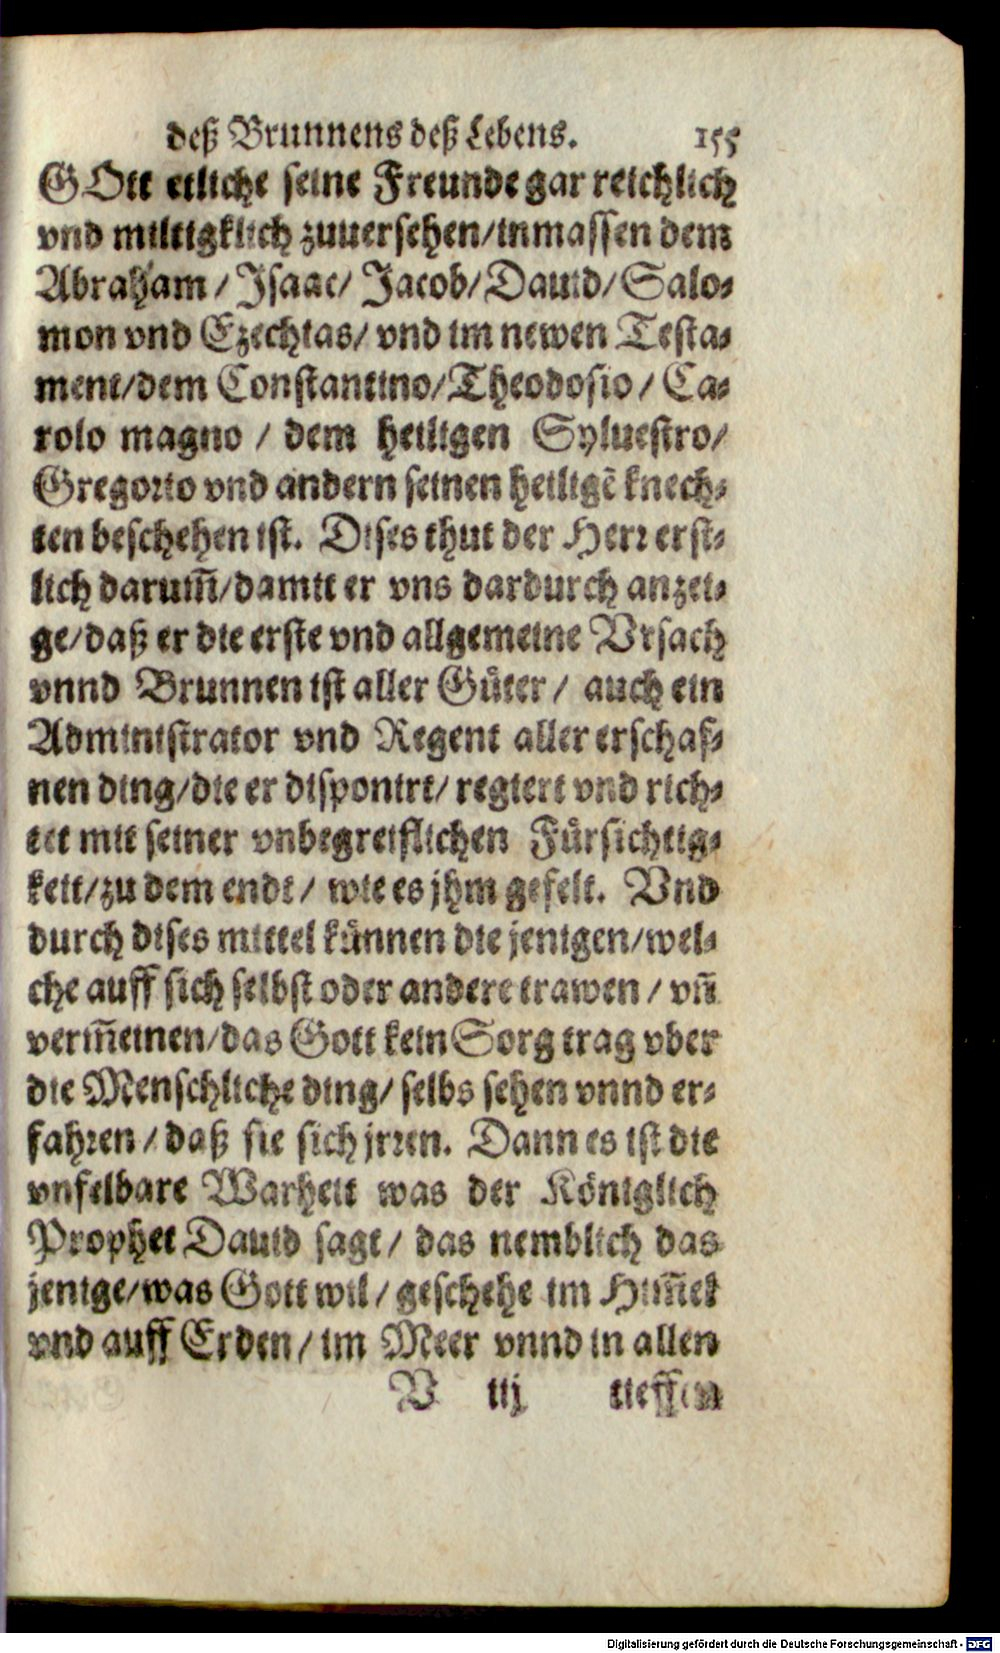 deß Brunnens deß Lebens. 155
GOtt etliche seine Freunde gar reichlich
vnd miltigklich zuuersehen/inmassen dem
Abraham / Isaac/ Jacob/ Dauid/ Salo-
mon vnd Ezechias/ vnd im newen Testa-
ment/dem Constantino/Theodosio / Ca-
rolo magno / dem heiligen Syluestro/
Gregorio vnd andern seinen heiligẽ knech-
ten beschehen ist. Dises thut der Herr erst-
lich darum̃/damit er vns dardurch anzei-
ge/daß er die erste vnd allgemeine Vrsach
vnnd Brunnen ist aller Guͤter / auch ein
Administrator vnd Regent aller erschaf-
nen ding/die er disponirt/ regiert vnd rich-
tet mit seiner vnbegreiflichen Fuͤrsichtig-
keit/zu dem ende/ wie es jhm gefelt. Vnd
durch dises mittel kuͤnnen die jenigen/wel-
che auff sich selbst oder andere trawen / vñ
verm̃einen/das Gott kein Sorg trag vber
die Menschliche ding/ selbs sehen vnnd er-
fahren / daß sie sich jrren. Dann es ist die
vnfelbare Warheit was der Königlich
Prophet Dauid sagt/ das nemblich das
jenige/was Gott wil/ geschehe im Him̃el
vnd auff Erden/ im Meer vnnd in allen
V iij tieffen
Digitalisierung gefördert durch die Deutsche Forschungsgemeinschaft - DFG